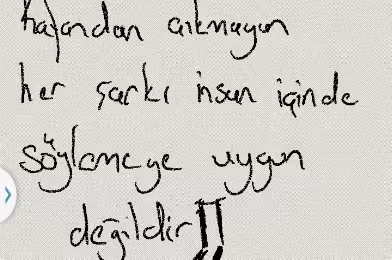 hafından çıkmayın
her şarkı insan içinde
söylemeye uygun
değildir!!